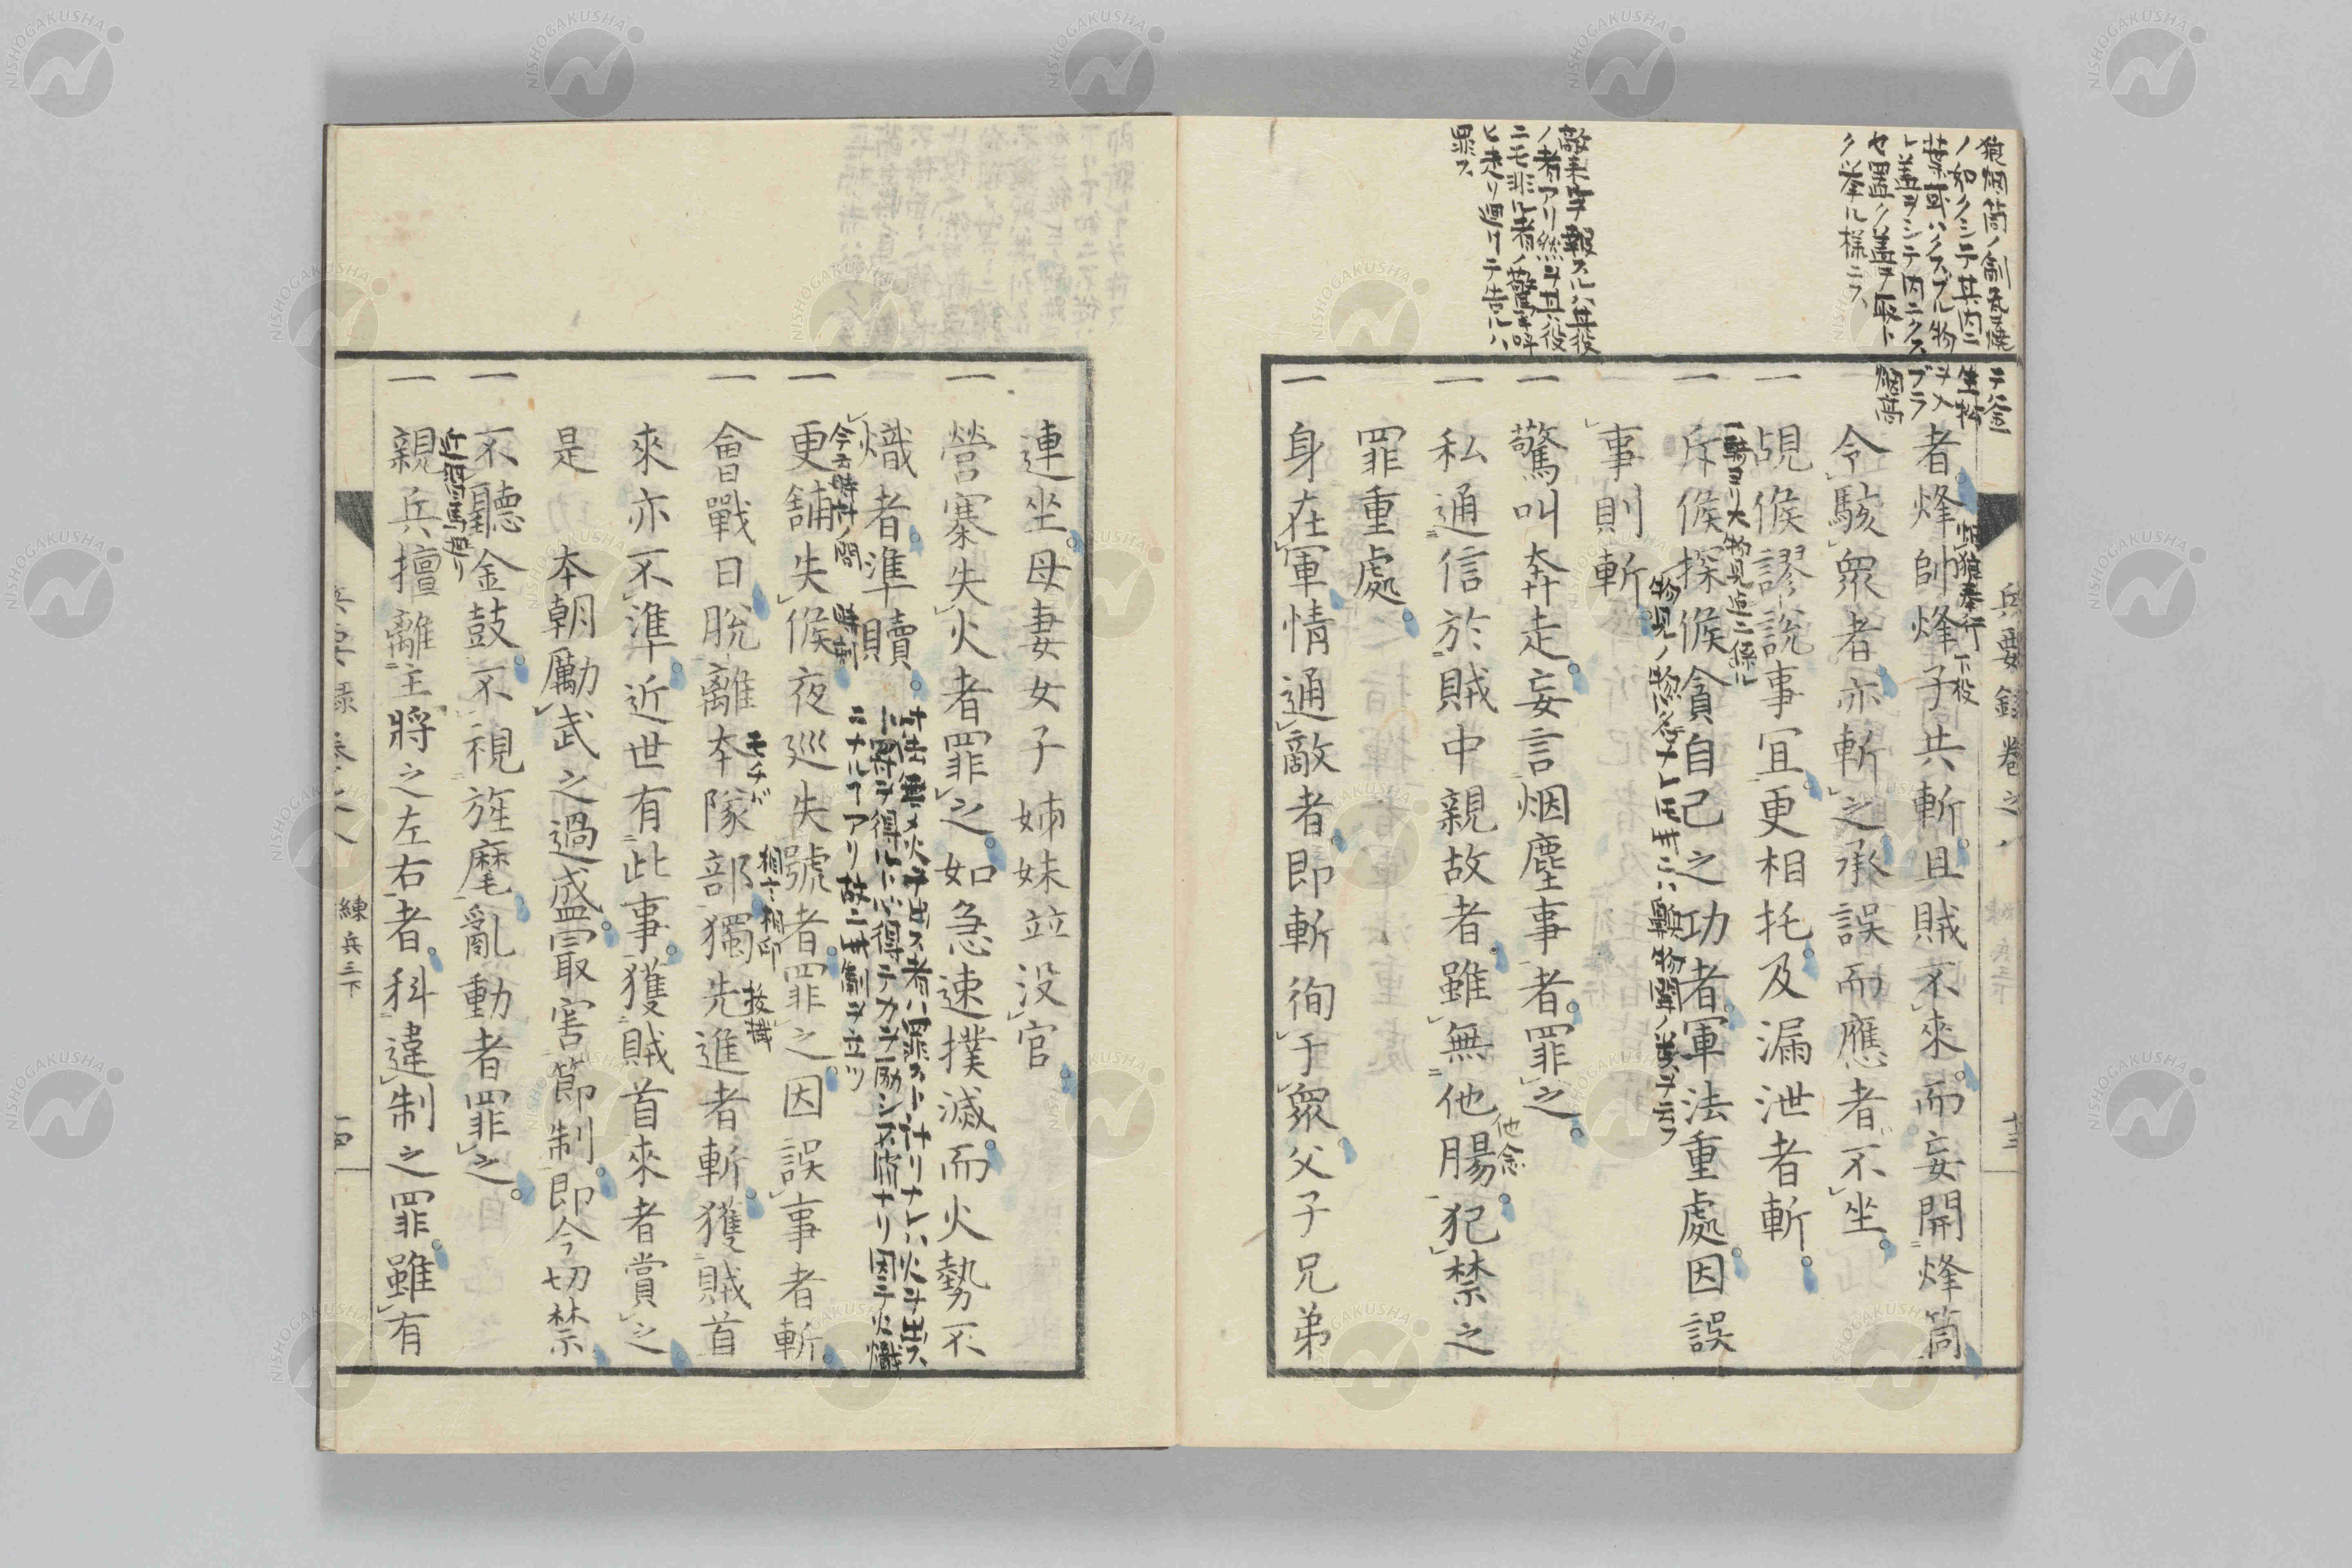 者烽帥烽子共斬且賊不來而妄開烽筒
令駭衆者亦斬之承誤而應者不坐
一覘候謬説事冝更相托及漏泄者斬
一斥候探候貪自己之功者軍法重處因誤
事則斬
一驚叫奔走妄言烟塵事者罪之
一私通信於賊中親故者雖無他腸犯禁之
罪重處
一身在軍情通敵者即斬徇于衆父子兄弟
連坐母妻女子姉妹並没官
一營寨失火者罪之如急速撲滅而火勢不
熾者準贖
一更舗失候夜巡失號者罪之因誤事者斬
一會戰日脱離本隊部獨先進者斬獲賊首
來亦不準近世有此事獲賊首來者賞之
是本朝勵武之過盛最害節制即今切禁
一不聽金鼓不視旌麾亂動者罪之
一親兵擅離主將之左右者科違制之罪雖有
狼烟筒ノ
ノ如クシテ其内ニ
ク挙ル様ニス
敵来ヲ報スルハ其役
ノ者アリ然ヲ其役
ニモ非ル者ノ驚キ叫
ヒ走リ廻リテ告ルハ
罪ス
下役
他念
モチバ
時刻
兵要録卷之八
練兵三下
十三